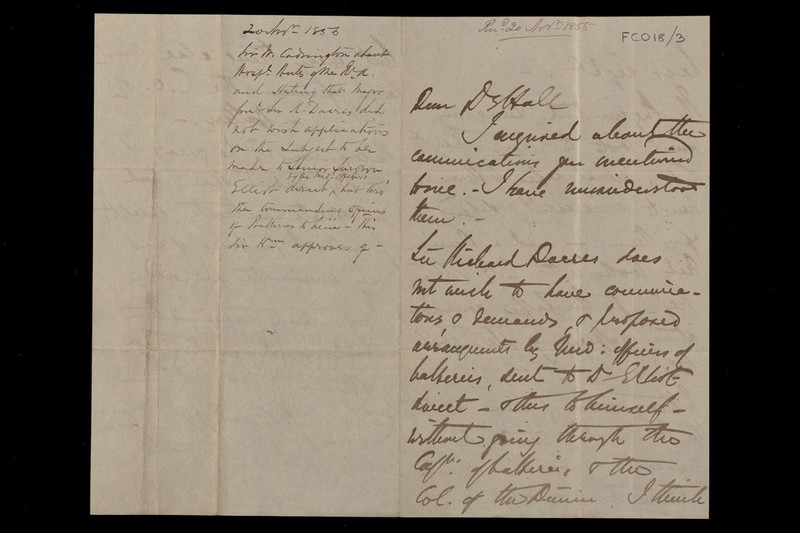 20 Novr 1855
Sir Wm Codrington about
Hospl. Huts of the R.A.
and stating that Major
Genl Sir R. Dacres did
not wish applications
on the subject to be
made to Senior Surgeon
by the Med. Officers
Elliot direct, but thro
the Commanding Officers
of Batteries to him - this
Sir Wm approves of -
Recd. 20 Novr 1855
FCO18/3
Dear Dr Hall
I enquired about the
communications you mentioned
to me. - I have misunderstood
them. -
Sir Richard Dacres does
not wish to have communica-
tions, & demands, & proposed
arrangements by Med: officers of
batteries, sent to Dr Elliot
direct - & thus to himself -
without going through the
Captns: of batteries, & the
Col. of the Division. I think